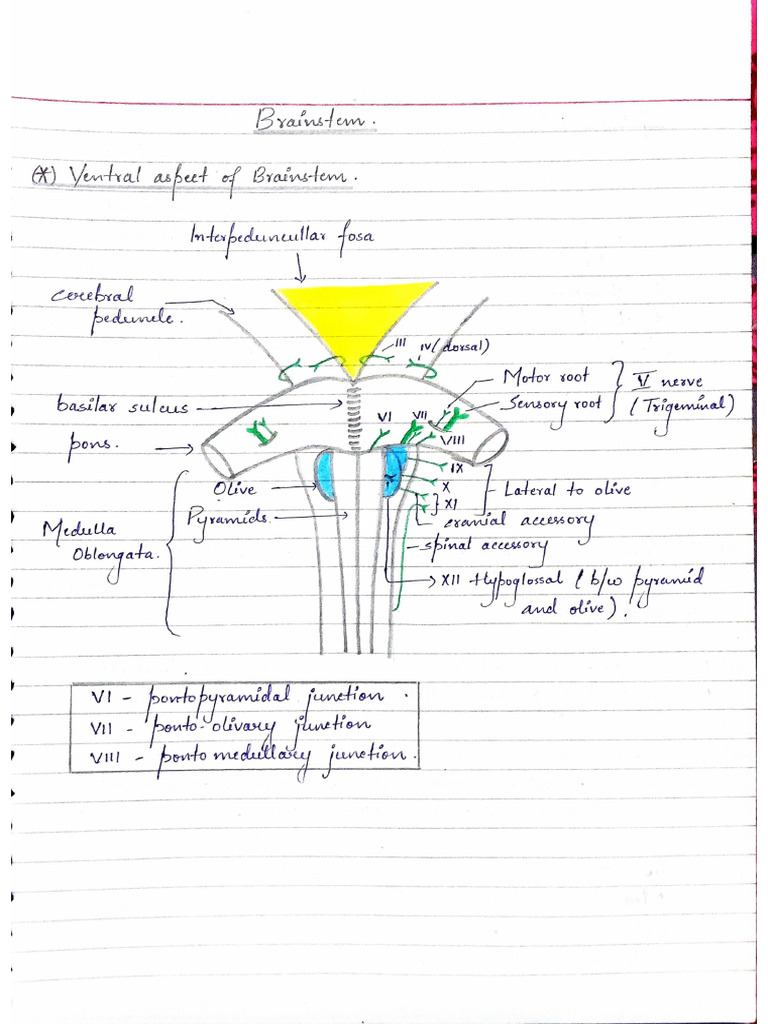 Brainstem.
(*) Ventral aspect of Brainstem.
Interpeduncullar fosa
Cerebral
peduncle.
III
IV (dorsal)
Motor root
Sensory root
V nerve
(Trigeminal)
basilar sulcus
VI
VII
VIII
pons.
IX
X
XI
Lateral to olive
Olive
Pyramids.
cranial accessory
Medulla
Oblongata.
spinal accessory
XII Hypoglossal (b/w pyramid
and olive).
VI - pontopyramidal junction.
VII - ponto-olivary junction
VIII - ponto medullary junction.